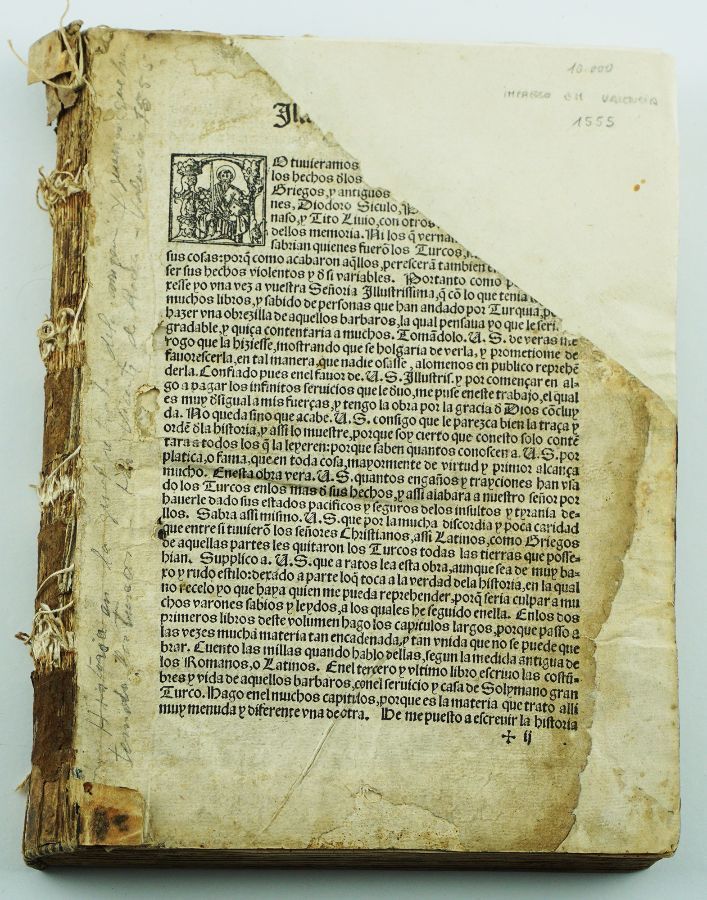 10.000
IMPRESSO EM VALENCIA
1555
Illu
O tuuieramos
los hechos dlos
Griegos, y antiguos
nes, Diodoro Siculo,
naso, y Tito Liuio, con otros
dellos memoria. Ni los q̃ vernan
sabrian quienes fuerõ los Turcos,
sus cosas: porq̃ como acabaron aq̃llos, peresceran tambien
ser sus hechos violentos y d̃ si variables. Portanto como
xesse yo vna vez a vuestra Señoria Illustrissima, q̃ cõ lo que tenia
muchos libros, y sabido de personas que han andado por Turquia,
hazer vna obrezilla de aquellos barbaros, la qual pensaua yo que le seri
gradable, y quiça contentaria a muchos. Tomãdolo .U. S. de veras me
rogo que la hiziesse, mostrando que se holgaria de verla, y prometiome de
fauorescerla, en tal manera, que nadie osasse, alomenos en publico reprehẽ
derla. Confiado pues enel fauor de .U. S. Illustris. y por començar en al-
go a pagar los infinitos seruicios que le deuo, me puse eneste trabajo, el qual
es muy dsigual a mis fuerças, y tengo la obra por la gracia d̃ Dios cõcluy
da. No queda sino que acabe .U. S. consigo que le parezca bien la traça y
ordẽ dla historia, y assi lo muestre, porque soy cierto que conesto solo contẽ
tara a todos los q̃ la leyeren: porque saben quantos conoscen a .U. S. por
platica, o fama, que en toda cosa, mayormente de virtud y primor alcança
mucho. Enesta obra vera .U. S. quantos engaños y trayciones han vsa
do los Turcos enlos mas d̃ sus hechos, y assi alabara a nuestro señor por
hauerle dado sus estados pacificos y seguros delos insultos y tyrania de-
llos. Sabra assi mismo .U. S. que por la mucha discordia y poca caridad
que entre si tuuierõ los señores Christianos, assi Latinos, como Griegos
de aquellas partes les quitaron los Turcos todas las tierras que posse-
hian. Supplico a .U. S. que a ratos lea esta obra, aunque sea de muy ba-
xo y rudo estilo: dexado a parte loq̃ toca a la verdad dela historia, en la qual
no recelo yo que haya quien me pueda reprehender, porq̃ seria culpar a mu
chos varones sabios y leydos, a los quales he seguido enella. Enlos dos
primeros libros deste volumen hago los capitulos largos, porque passo a
las vezes mucha materia tan encadenada, y tan vnida que no se puede que
brar. Cuento las millas quando hablo dellas, segun la medida antigua de
los Romanos, o Latinos. Enel tercero y vltimo libro escriuo las costũ-
bres y vida de aquellos barbaros, conel seruicio y casa de Solymano gran
Turco. Hago enel muchos capitulos, porque es la materia que trato alli
muy menuda y diferente vna de otra. He me puesto a escreuir la historia
✠ ij
Historia en la
Turcos
Valencia 1555